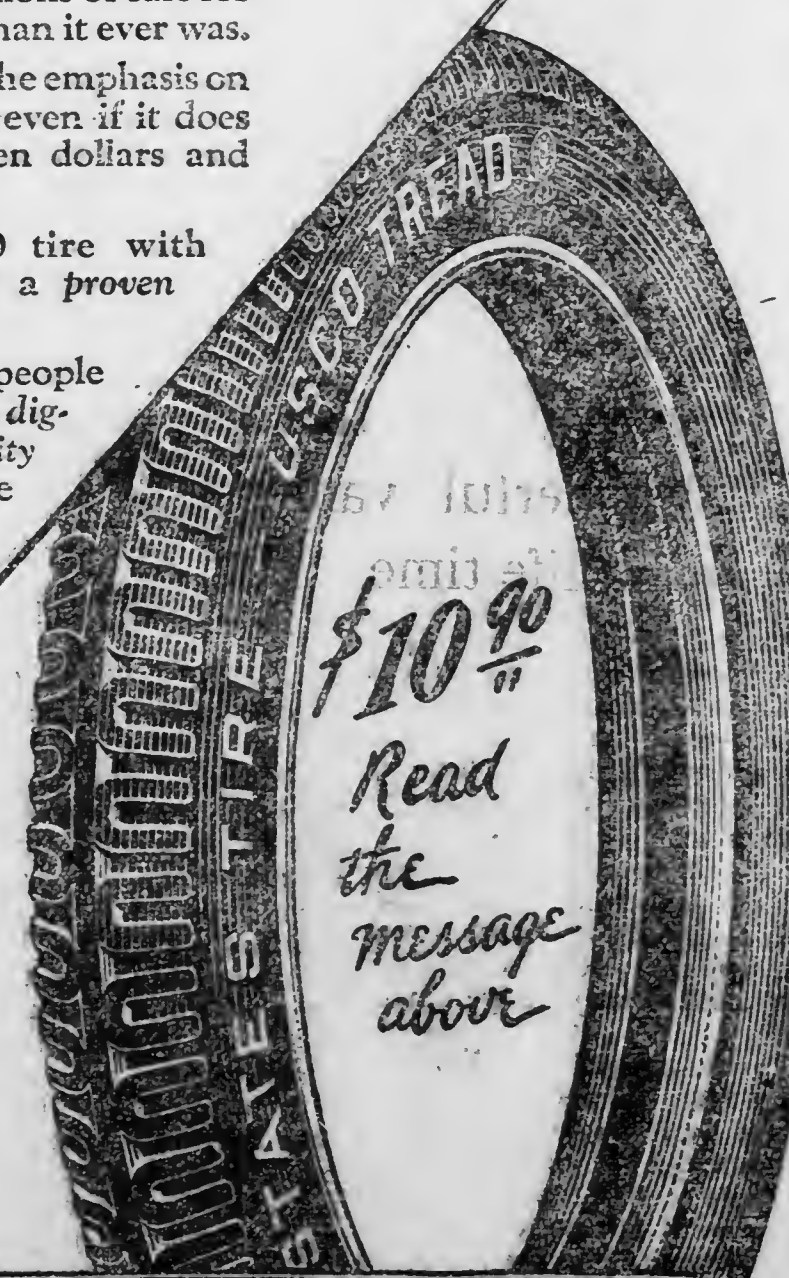 han it ever was.
he emphasis on
even if it does
en dollars and
tire with
a proven
people
dig-
ity
e
USCO TREAD
STATES TIRE
$10 90
Read
the
message
above